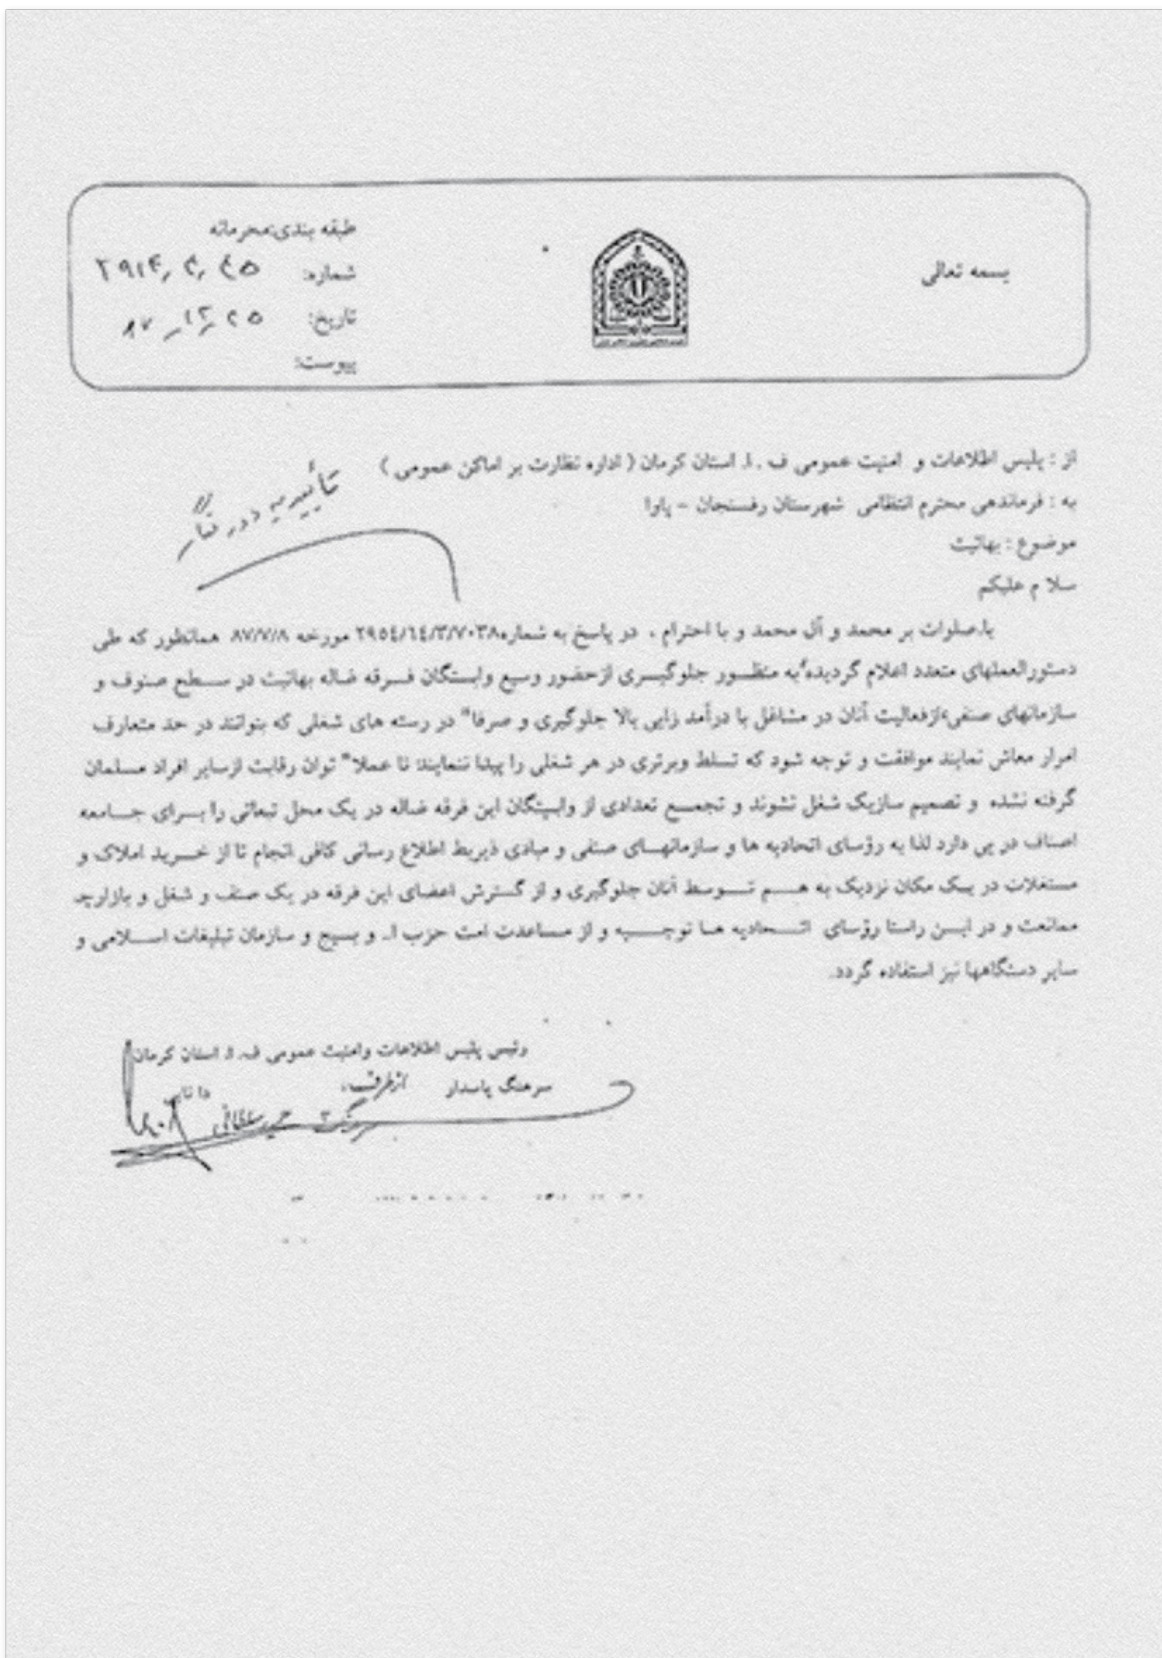 بسمه تعالی
طبقه بندی:محرمانه
شماره:
تاریخ: ۸۷
پیوست:
از : پلیس اطلاعات و امنیت عمومی ف . ا. استان کرمان ( اداره نظارت بر اماکن عمومی )
به : فرماندهی محترم انتظامی شهرستان رفسنجان – پاوا
موضوع : بهائیت
سلا م علیکم
با.صلوات بر محمد و آل محمد و با احترام ، در پاسخ به شماره۲۹۵٤/۱٤/۳/۷۰۳۸ مورخه ۸۷/۷/۸ همانطور که طی
دستورالعملهای متعدد اعلام گردیده به منظـــور جلوگیـــری ازحضور وسیع وابستگان فـــرقه ضاله بهائیت در ســـطح صنوف و
سازمانهای صنفی،ازفعالیت آنان در مشاغل با درآمد زایی بالا جلوگیری و صرفا" در رسته های شغلی که بتوانند در حد متعارف
امرار معاش نمایند موافقت و توجه شود که تسلط وبرتری در هر شغلی را پیدا ننمایند تا عملا" توان رقابت ازسایر افراد مسلمان
گرفته نشده و تصمیم سازیک شغل نشوند و تجمـــع تعدادی از وابستگان این فرقه ضاله در یک محل تبعاتی را بـــرای جـــامعه
اصناف در پی دارد لذا به رؤسای اتحادیه ها و سازمانهـــای صنفی و مبادی ذیربط اطلاع رسانی کافی انجام تا از خـــرید املاک و
مستغلات در یـک مکان نزدیک به هـــم تـــوسط آنان جلوگیری و از گسترش اعضای این فرقه در یک صنف و شغل و بازارچه
ممانعت و در ایـــن راستا رؤسای اتـــحادیه هـا توجـــیه و از مساعدت امت حزب ا.. و بسیج و سازمان تبلیغات اســـلامی و
سایر دستگاهها نیز استفاده گردد.
رئیس پلیس اطلاعات وامنیت عمومی ف. ا. استان کرمان
سرهنگ پاسدار ازطرف